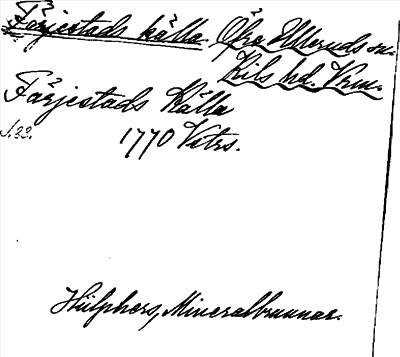 Färjestads källa. Övre Ulleruds sn.
Kils hd. Vrm.
Färjestads Källa
S. 33.
1770 Vitrs.
Hülphers, Mineralbrunnar.